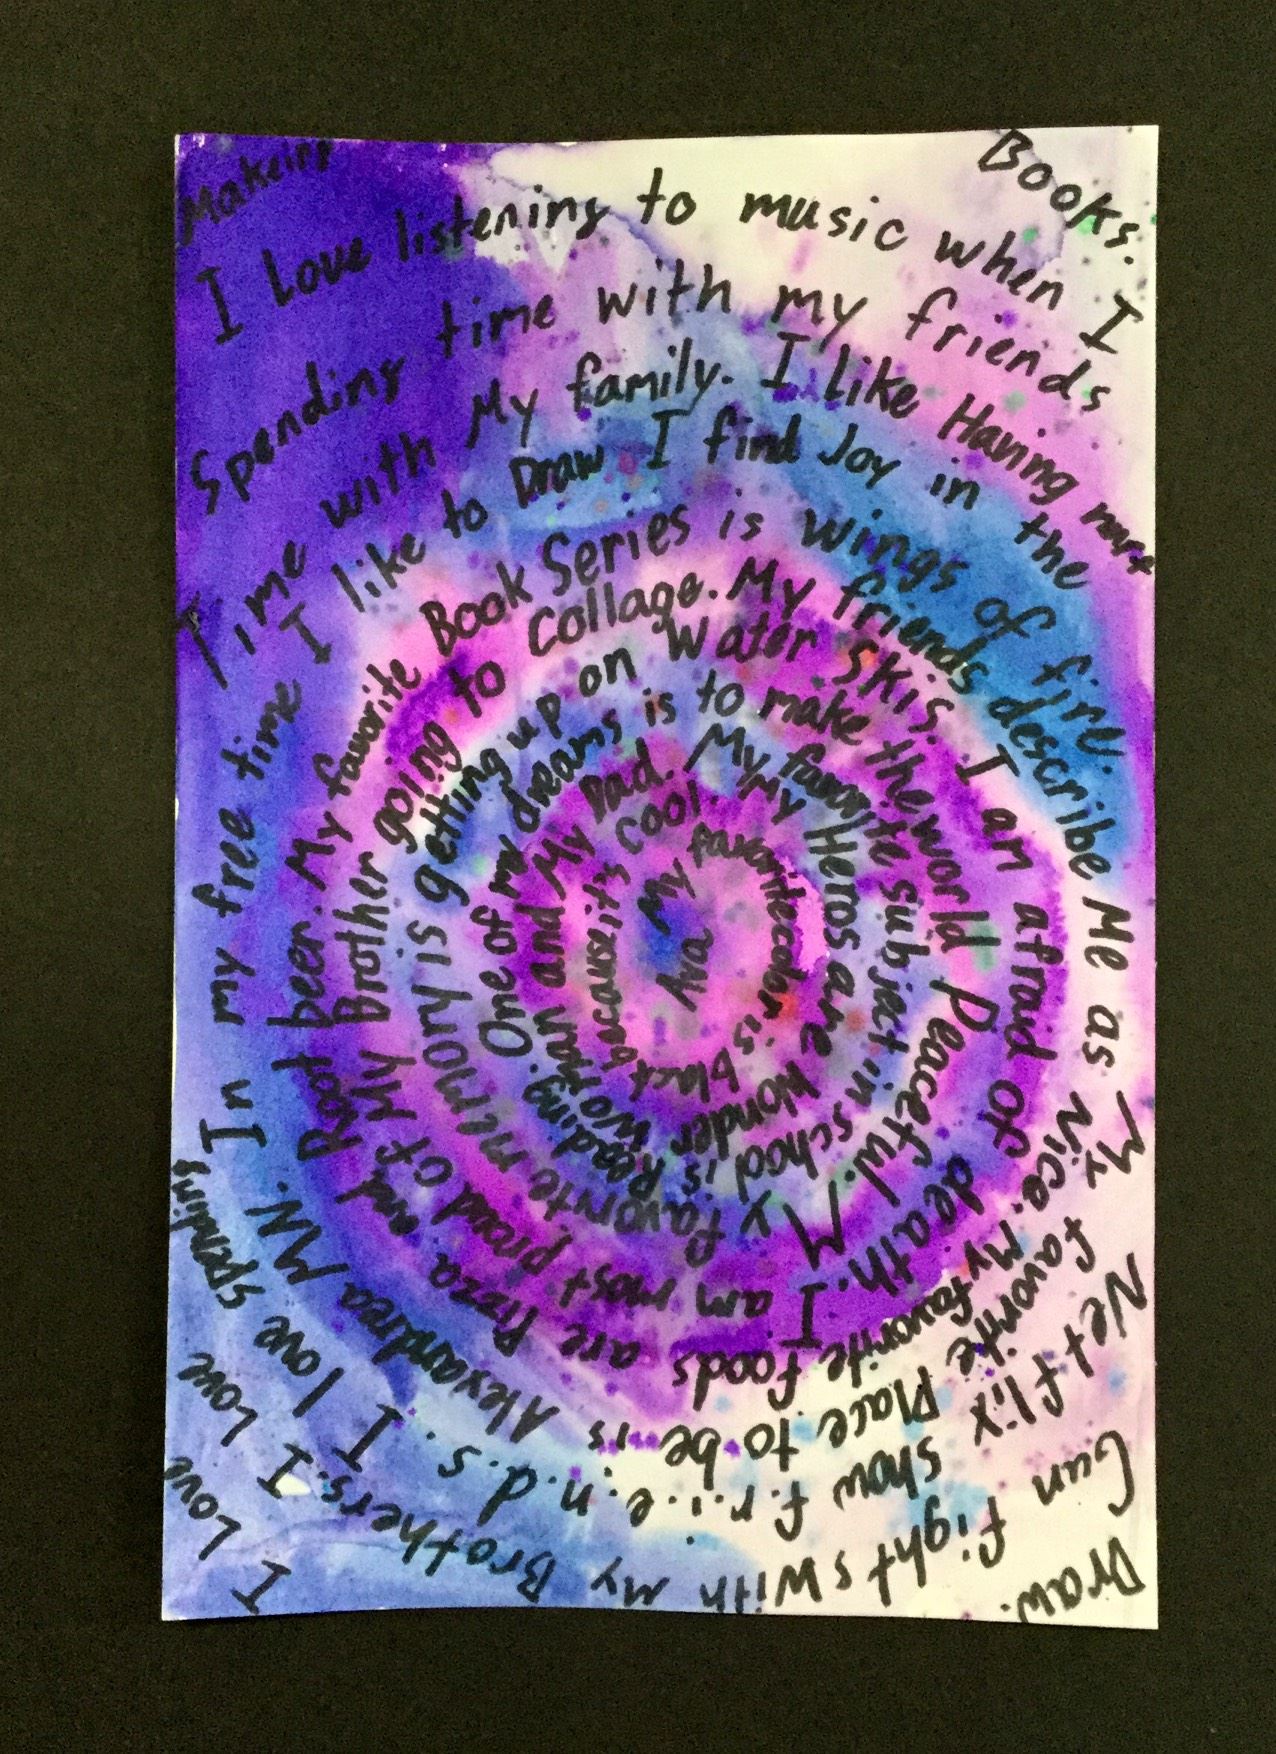 Ava
My favorite color is black because it's cool.
My Heros are Wonder Woman and My Dad.
My favorite subject in school is Reading.
One of my dreams is to make the world Peaceful.
My favorite memory is getting up on Water Skis.
I am afraid of death.
I am most proud of My Brother going to collage.
My friends describe Me as Nice.
My favorite foods are Pizza and Root beer.
My favorite Book Series is wings of fire.
My favorite Place to be is Alexandrea MN.
In my free time I like to Draw
I find Joy in the
My favorite Netflix show f.r.i.e.n.d.s.
I love spending Time with My family.
I like Having nerf Gun fights with my Brothers.
I Love Spending time with my friends
I Love listening to music when I Draw.
I Love Makeing Books.